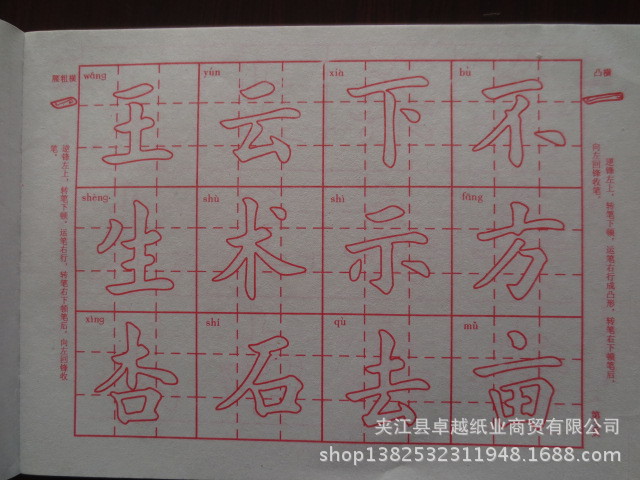 凸横
逆锋左上，转笔下顿，运笔右行成凸形，转笔右下顿笔后，
向左回锋收笔。
bù xià yún wáng
不 下 云 王
fāng shì shù shēng
方 示 术 生
mǔ qù shí xìng
亩 去 石 杏
横
逆锋左上，转笔下顿，运笔右行，转笔右下顿笔后，向左回锋收
笔。
夹江县卓越纸业商贸有限公司
shop1382532311948.1688.com